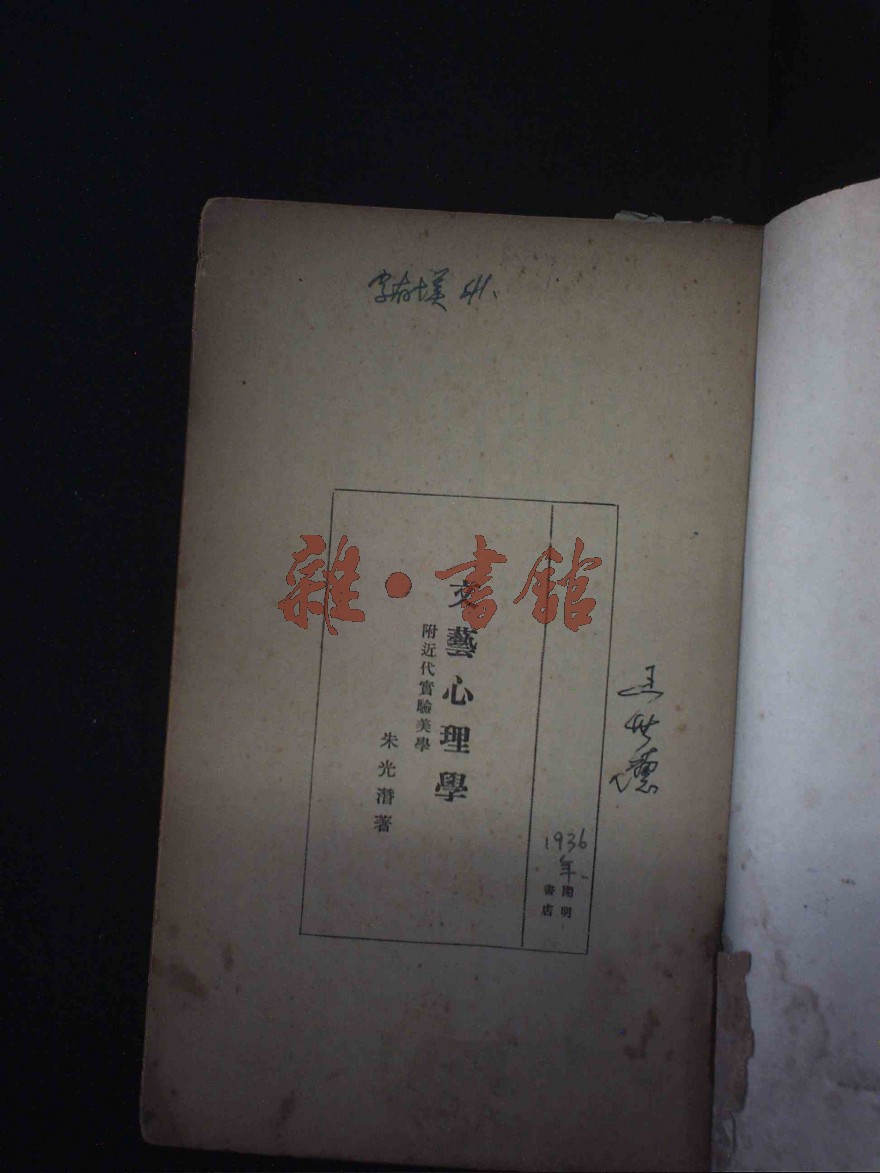 雜·書館
文藝心理學
附近代實驗美學
朱光潛著
1936
年
開明
書店
王世德